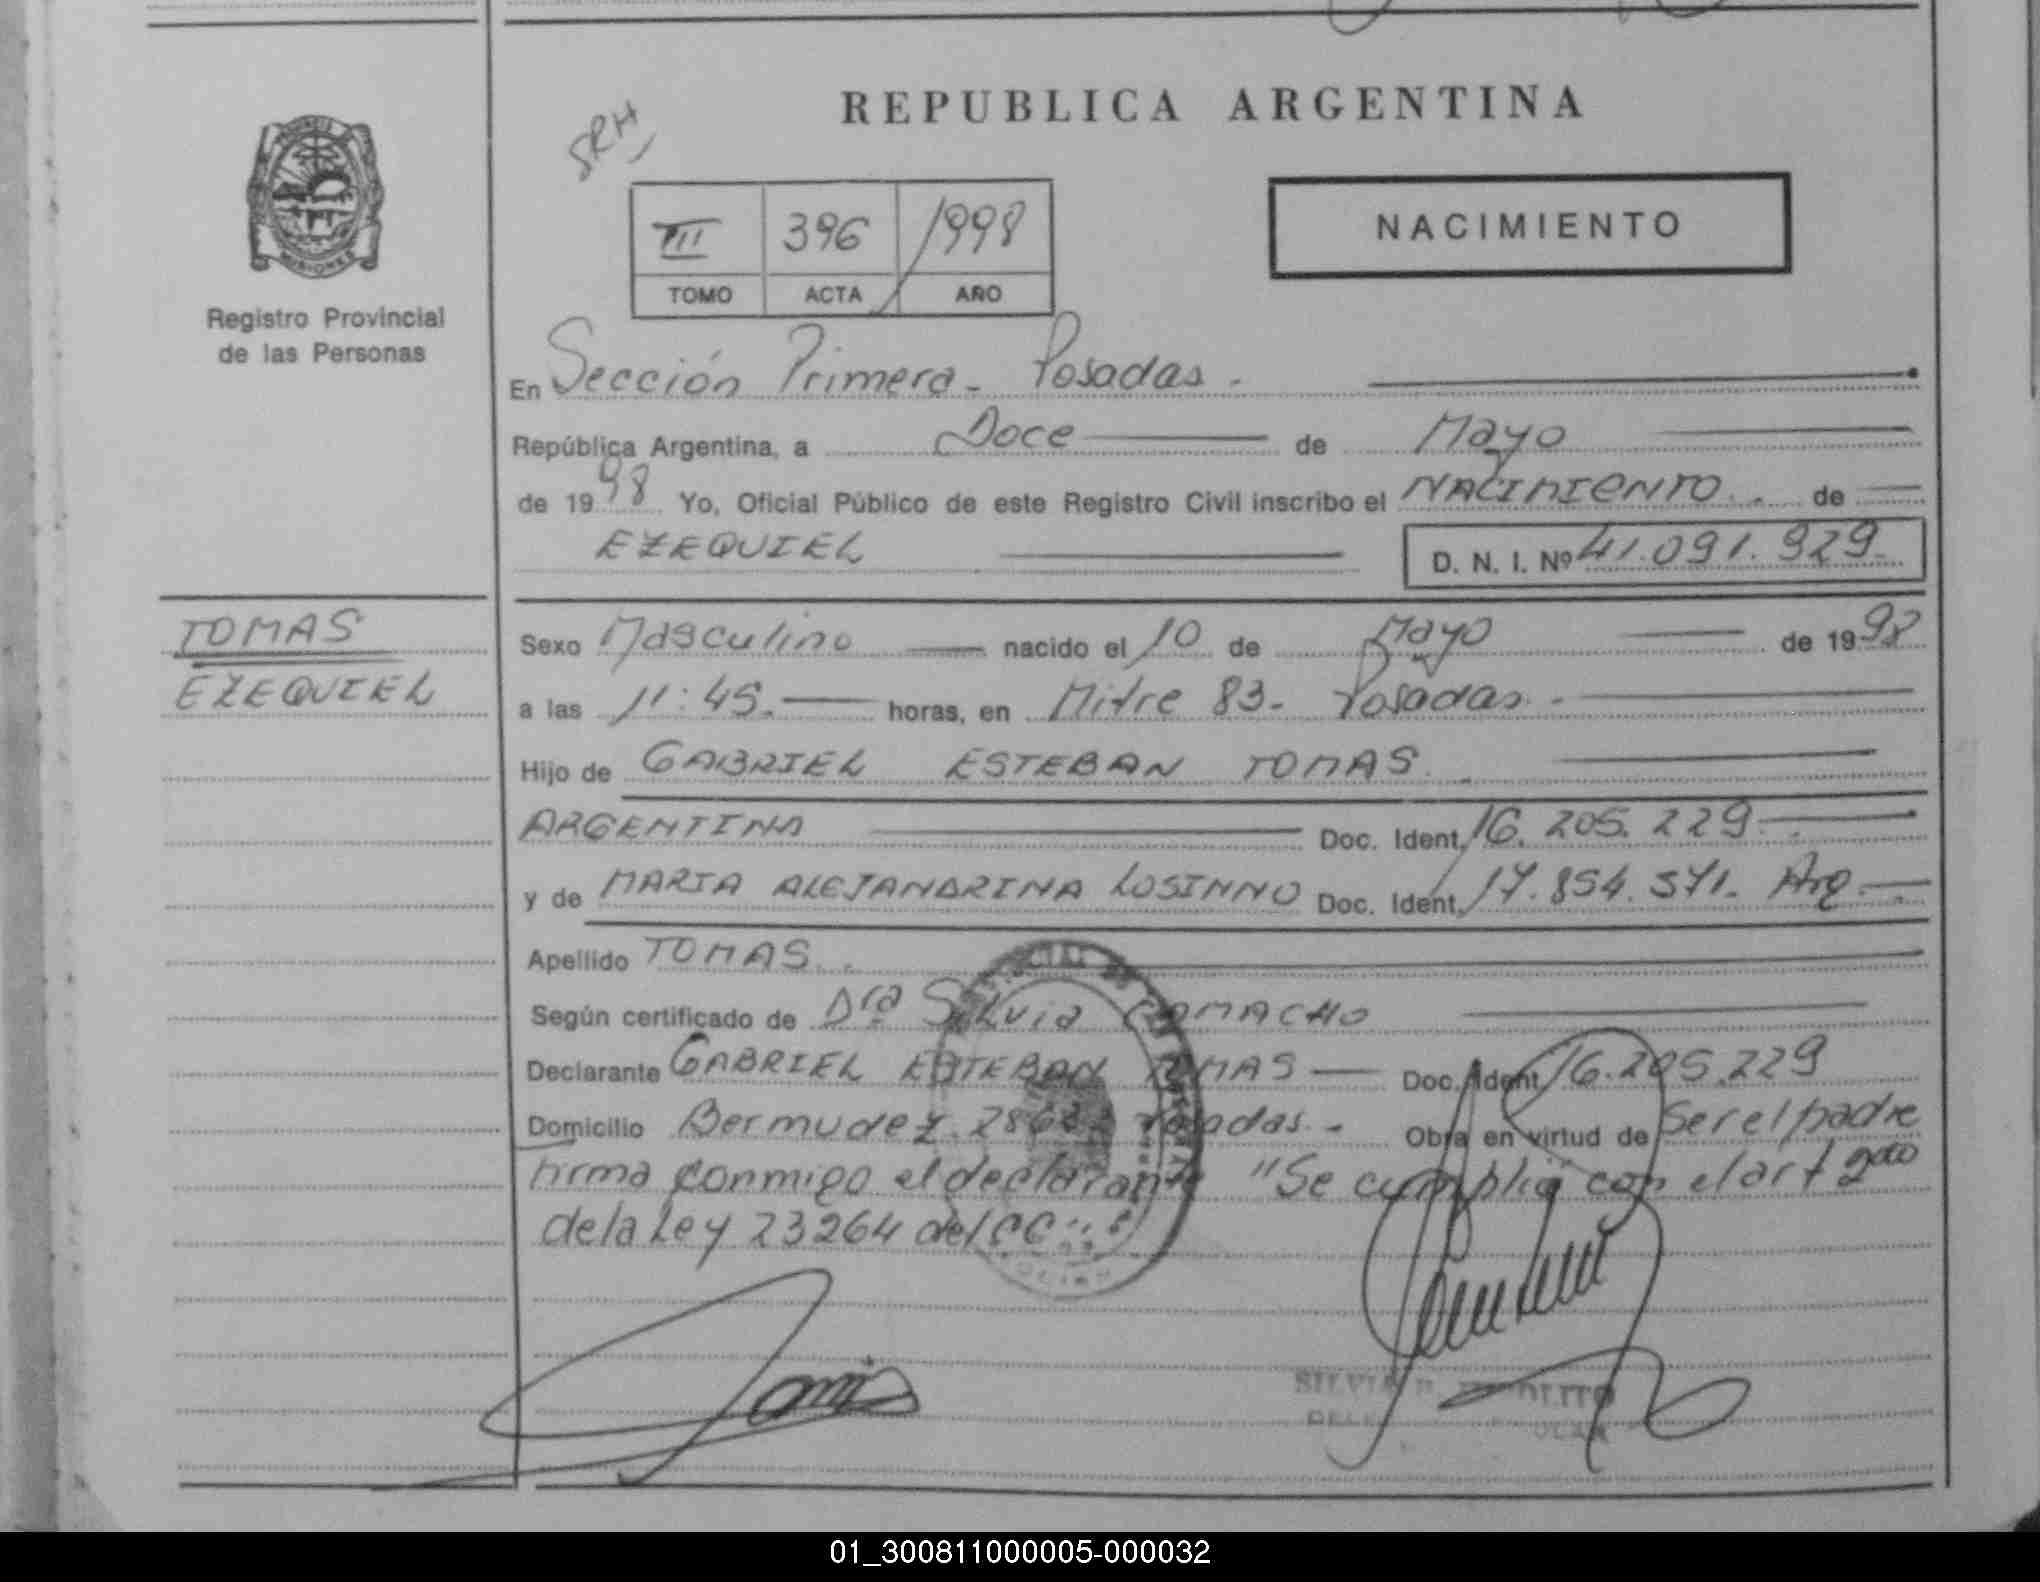 REPUBLICA ARGENTINA
SRH
III 396 /1998
TOMO ACTA AÑO
NACIMIENTO
MISIONES
Registro Provincial
de las Personas
En Sección Primera - Posadas -
República Argentina, a Doce de Mayo
de 1998 Yo, Oficial Público de este Registro Civil inscribo el NACIMIENTO de
EZEQUIEL D. N. I. Nº 41.091.929
TOMAS
EZEQUIEL
Sexo Masculino nacido el 10 de Mayo de 1998
a las 11:45 horas, en Mitre 83 - Posadas -
Hijo de GABRIEL ESTEBAN TOMAS
ARGENTINA Doc. Ident. 16.205.229
y de MARIA ALEJANDRINA LOSINNO Doc. Ident. 17.854.571. Arg.
Apellido TOMAS
Según certificado de Dra Silvia CAMACHO
Declarante GABRIEL ESTEBAN TOMAS Doc. Ident 16.205.229
Domicilio Bermudez Posadas - Obra en virtud de Ser el padre
firma conmigo el declarante "Se cumplió con el art 2do
de la Ley 23264 del CC"
SILVIA HIPOLITO
01_300811000005-000032